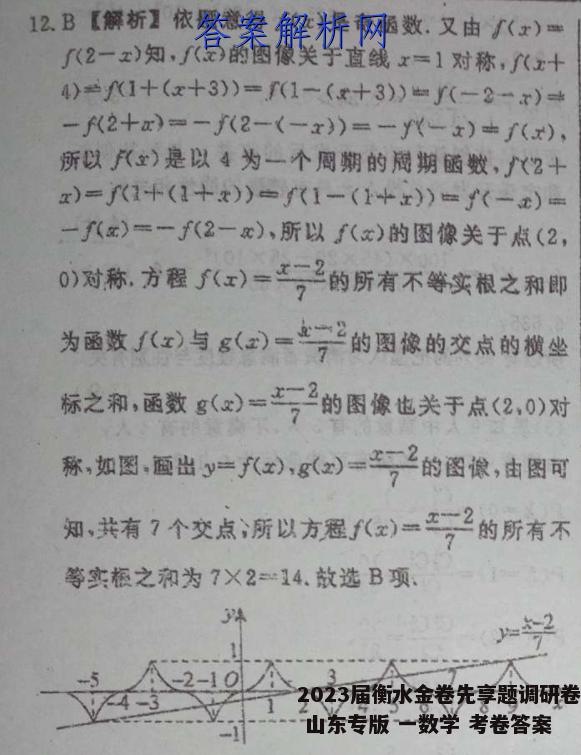 答案解析网
12. B 【解析】依题意得 f(x)是奇函数. 又由 f(x)=
f(2-x)知, f(x)的图像关于直线 x=1 对称, f(x+
4)=f(1+(x+3))=f(1-(x+3))=f(-2-x)=
-f(2+x)=-f(2-(-x))=-f(-x)=f(x),
所以 f(x)是以 4 为一个周期的周期函数, f(2+
x)=f(1+(1+x))=f(1-(1+x))=f(-x)=
-f(x)=-f(2-x), 所以 f(x)的图像关于点(2,
0)对称. 方程 f(x)=\frac{x-2}{7}的所有不等实根之和即
为函数 f(x)与 g(x)=\frac{x-2}{7}的图像的交点的横坐
标之和, 函数 g(x)=\frac{x-2}{7}的图像也关于点(2,0)对
称, 如图, 画出 y=f(x), g(x)=\frac{x-2}{7}的图像, 由图可
知, 共有 7 个交点, 所以方程f(x)=\frac{x-2}{7}的所有不
等实根之和为 7×2=14. 故选 B 项.
y
y=\frac{x-2}{7}
1
-5 -2 -1 O 3
-4 -3 1 2
-1
2023届衡水金卷先享题调研卷
山东专版 一数学 考卷答案